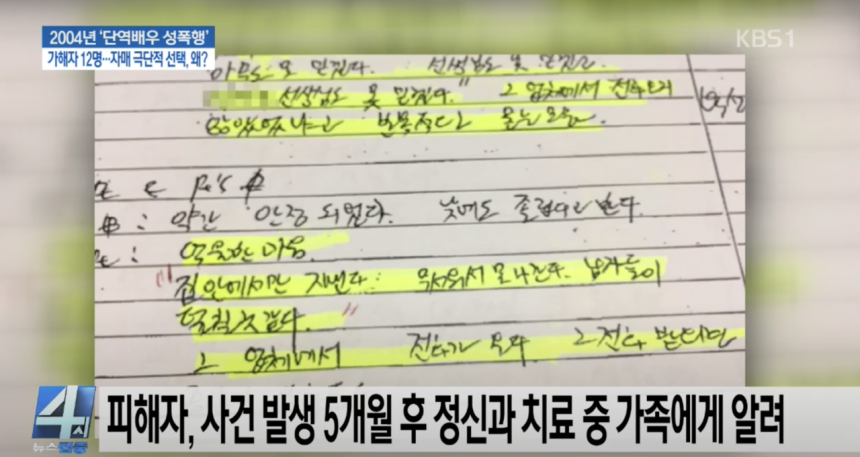 2004년 '단역배우 성폭행'
가해자 12명···자매 극단적 선택, 왜?
KBS1
아무도 못 믿겠다. 선생님도 못 믿겠고
선생님도 못 믿겠다." 그 업체에서 전화오지
않았었냐고 반복적으로 묻는 모습.
약간 안정 되었다. 낮에도 졸립다고 한다.
억울한 마음.
"집안에서만 지낸다. 무서워서 못 나간다. 남자들이
덮칠것 같다."
그 업체에서 전화가 온다 그 전화 받는다면
4시
뉴스집중
피해자, 사건 발생 5개월 후 정신과 치료 중 가족에게 알려